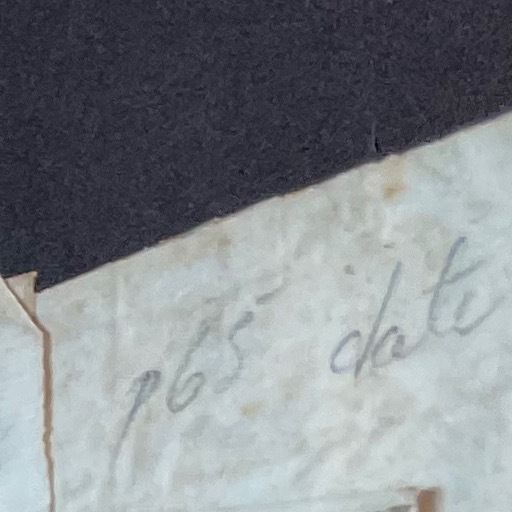 p65 date